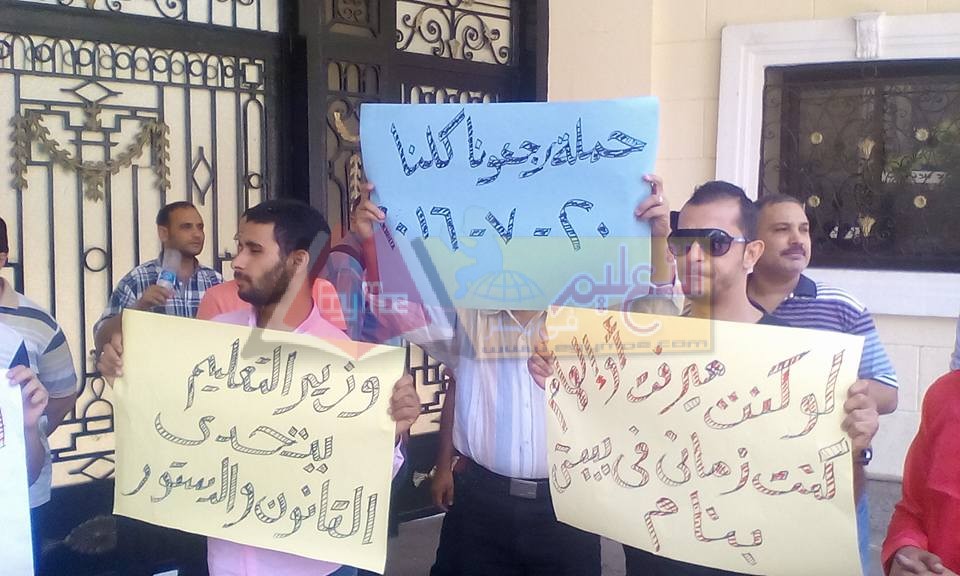 حملة رجعونا كلنا
٢٠-٧-٢٠١٦
وزير التعليم
يتحدى
القانون والدستور
لو كنت ميرفت أو إلهام
كنت زماني في بيتي
بنام
التعليم